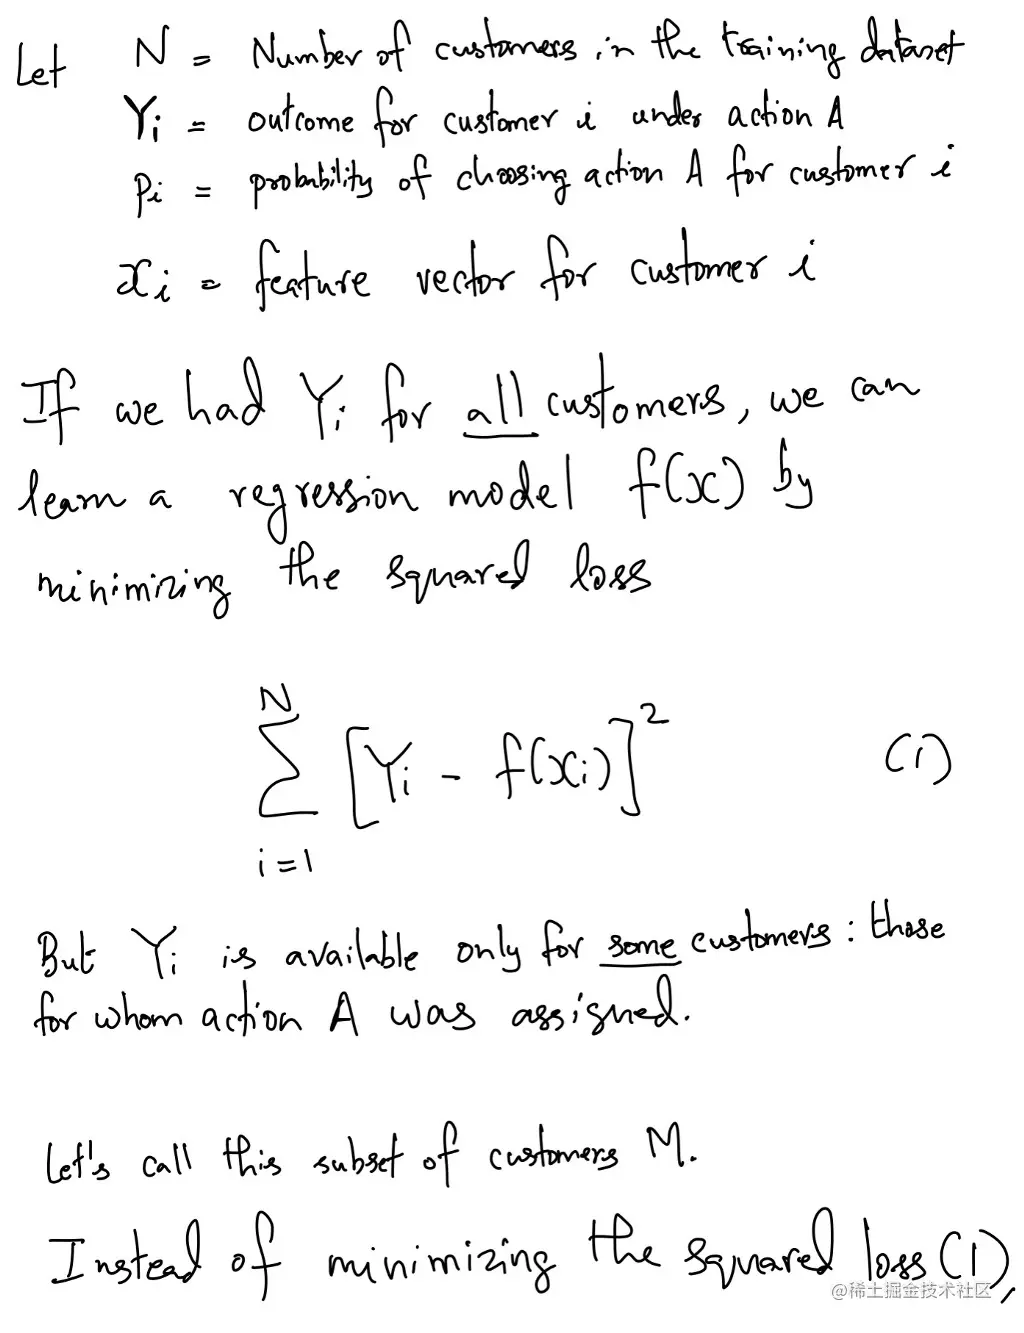 Let N = Number of customers in the training dataset
Yi = outcome for customer i under action A
pi = probability of choosing action A for customer i
xi = feature vector for customer i
If we had Yi for all customers, we can
learn a regression model f(x) by
minimizing the squared loss
N
∑ [Yi - f(xi)]² (1)
i=1
But Yi is available only for some customers: those
for whom action A was assigned.
Let's call this subset of customers M.
Instead of minimizing the squared loss (1),
@稀土掘金技术社区